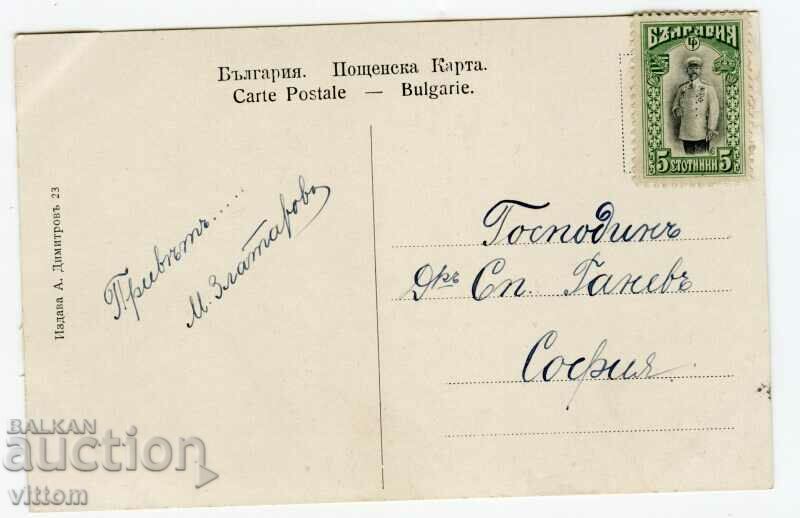 България. Пощенска Карта.
Carte Postale — Bulgarie.
БЪЛГАРИЯ
5 СТОТИНКИ 5
Издава А. Димитровъ 23
Привѣтъ.....
М. Златарова
Господинъ
Дръ Сп. Ганевъ
София
BALKAN
auction
vittom